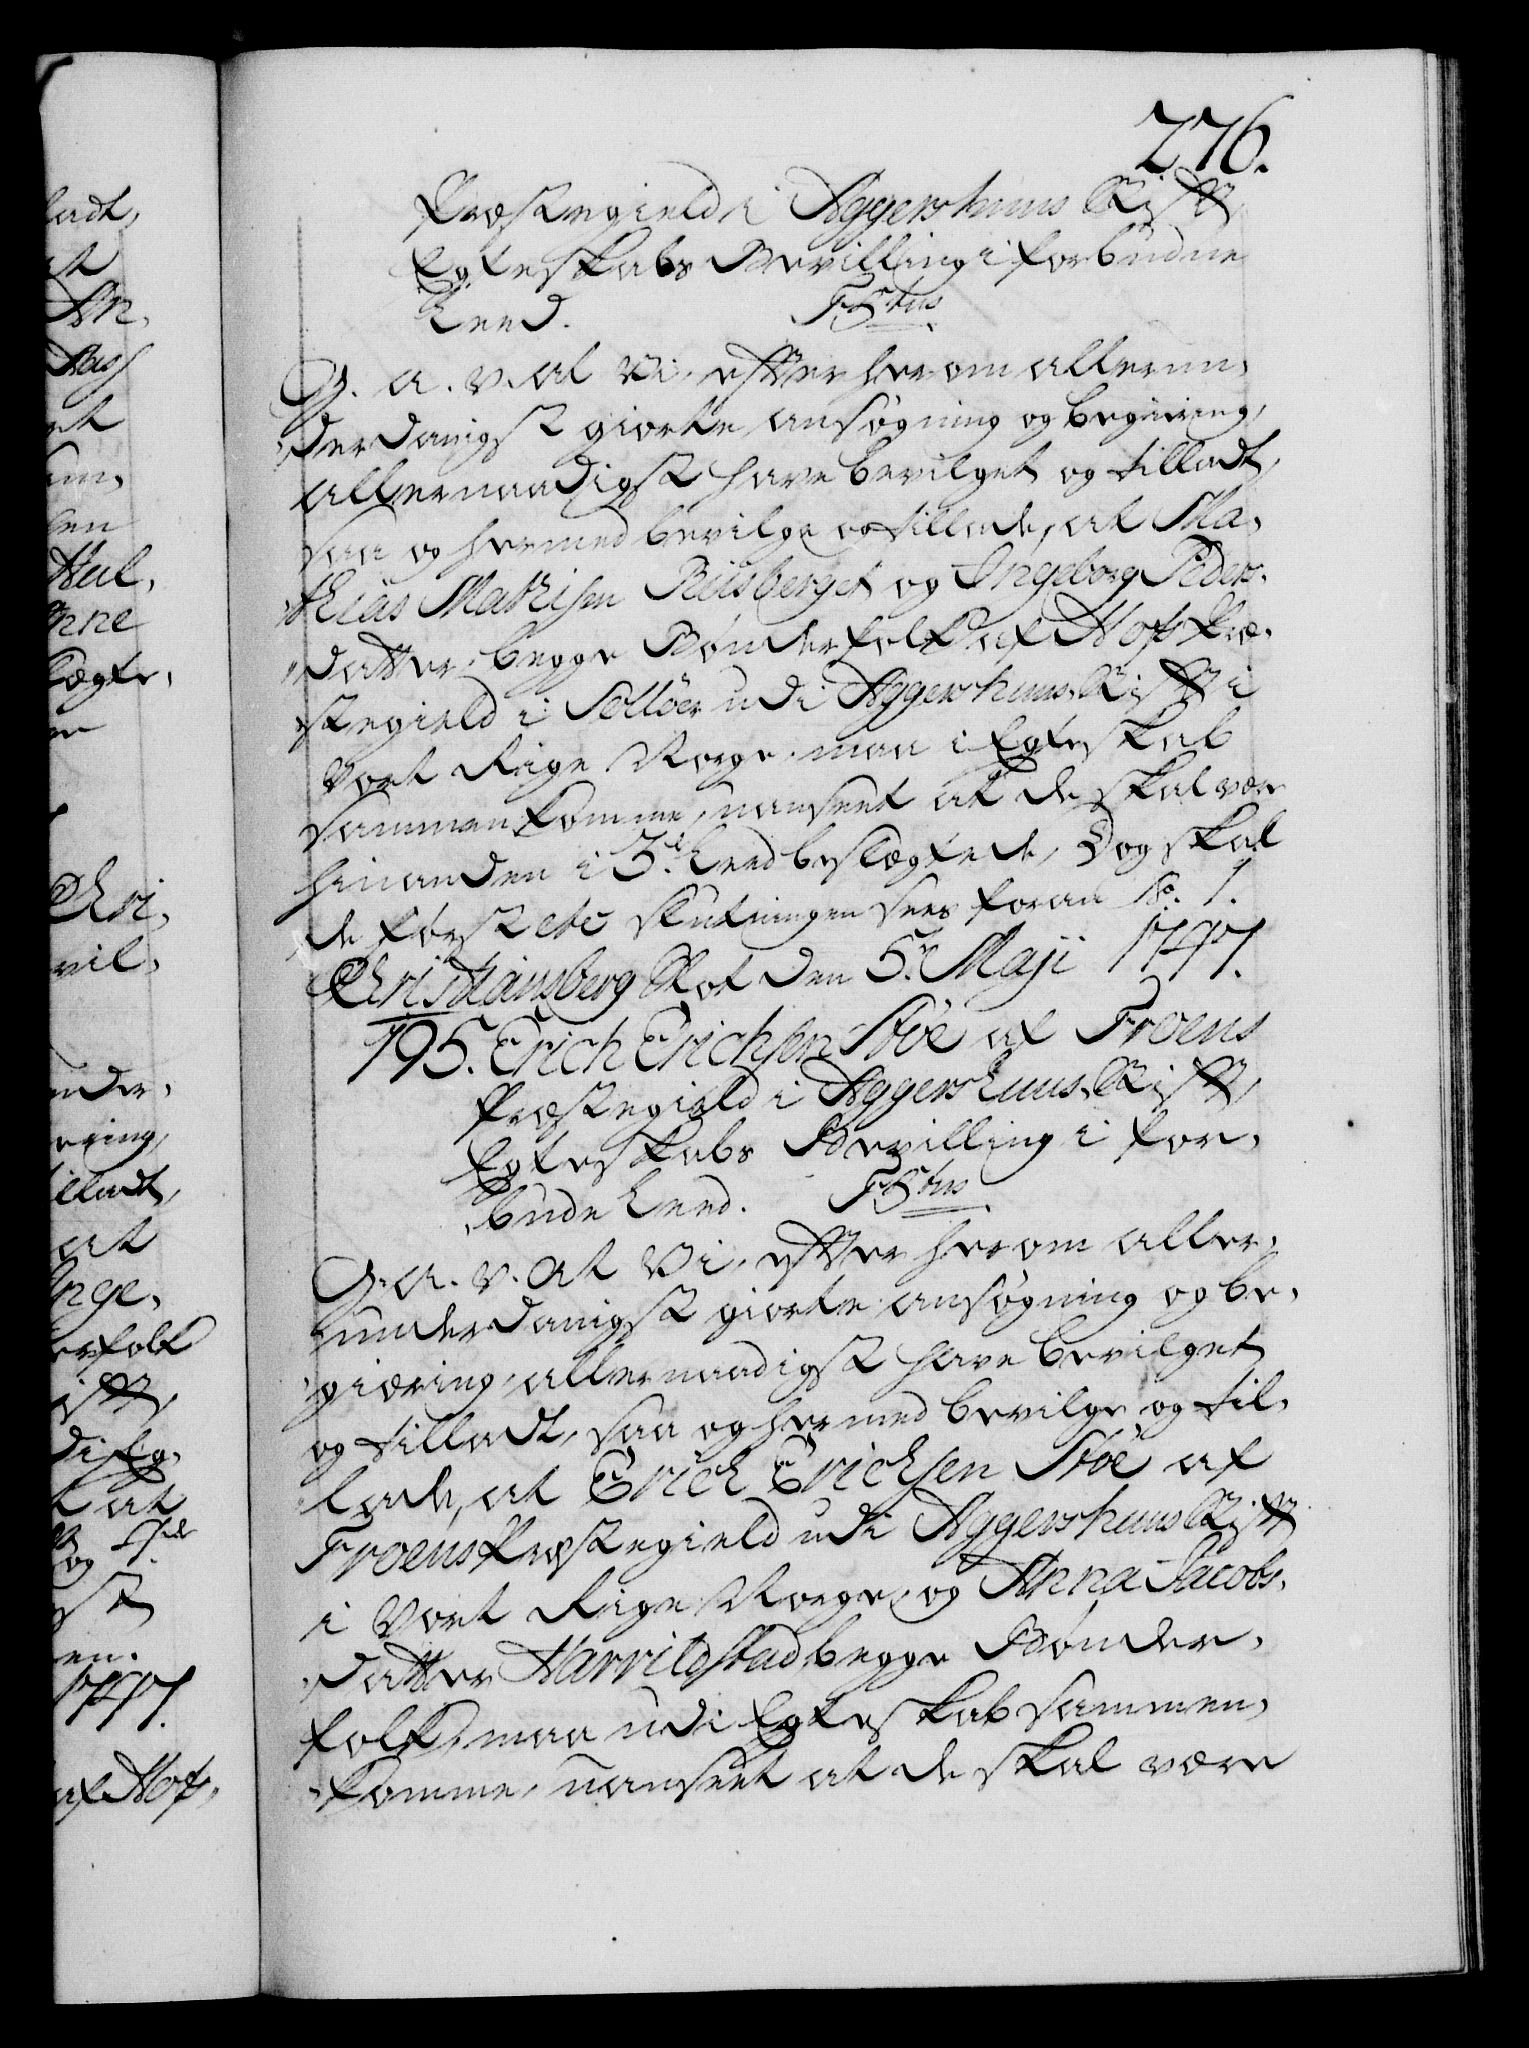 276.
Præstegield i Aggershuus Stifft,
Egteskabs Bevilling i forbudne
Leed. F5tus
G. a. v. at Vi, efter herom allerun,
derdanigst giorte ansøgning og begiering,
allernaadigst have bevilget og tilladt,
saa og hermed bevilge og tillade, at Ma,
thias Mathisen Riisberget og Ingeborg Peders,
datter, begge Bønderfolk af Hofs Præ,
stegield i Solløer udi Aggershuus Stifft i
Vort Rige Norge, maa i Egteskab
sammenkomme, uanseet at de skal være
hinanden i 3de Leed beslægtede, Dog skal
de først etc slutningen sees foran No. 1.
Christiansberg Slot den 5te Maji 1747.
195. Erich Erichsen Støe af Froens
Præstegield i Aggershuus Stifft,
Egteskabs Bevilling i for,
budne Leed. F5tus
G. a. v. at Vi, efter herom aller,
underdanigst giorte ansøgning og be,
giæring, allernaadigst have bevilget
og tilladt, saa og hermed bevilge og til,
lade, at Erich Erichsen Støe af
Froens Præstegield udi Aggershuus Stifft
i Vort Rige Norge, og Anna Jacobs,
datter Harrildstad begge Bønder,
folk, maa udi Egteskab sammen,
komme, uanseet at de skal være